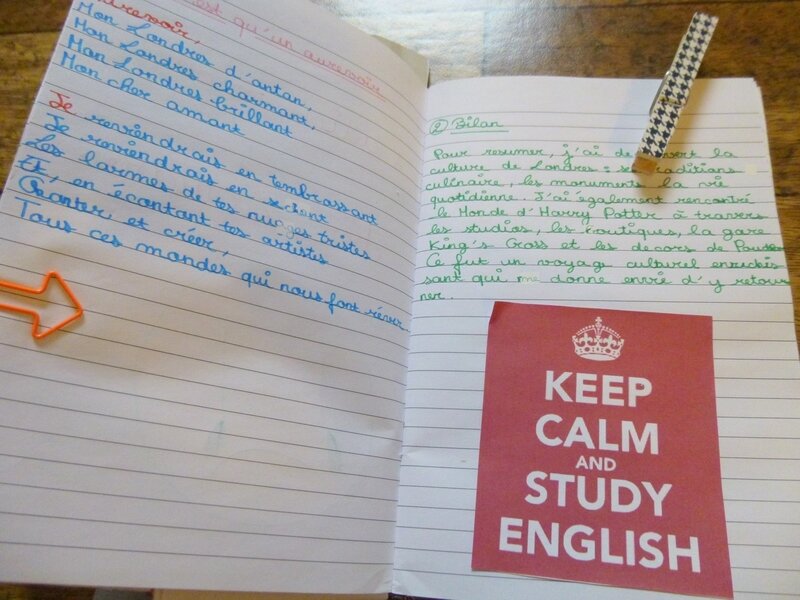 est qu'un aurevoir
aurevoir,
Mon Londres d'antan,
Mon Londres charmant,
Mon Londres brillant
Mon cher amant
Je
Je reviendrais en t'embrassant
Les larmes de tes nuages tristes
Et, en écoutant tes artistes
Chanter et créer,
Tous ces mondes qui nous font rêver
② Bilan
Pour resumer, j'ai découvert la
culture de Londres : ses traditions
culinaire, les monuments la vie
quotidienne. J'ai également rencontré
le Monde d'Harry Potter à travers
les studios, les boutiques, la gare
King's Cross et les decors de
Ce fut un voyag culturel enrichis
sant qui me donne envie d'y retour
ner.
KEEP
CALM
AND
STUDY
ENGLISH